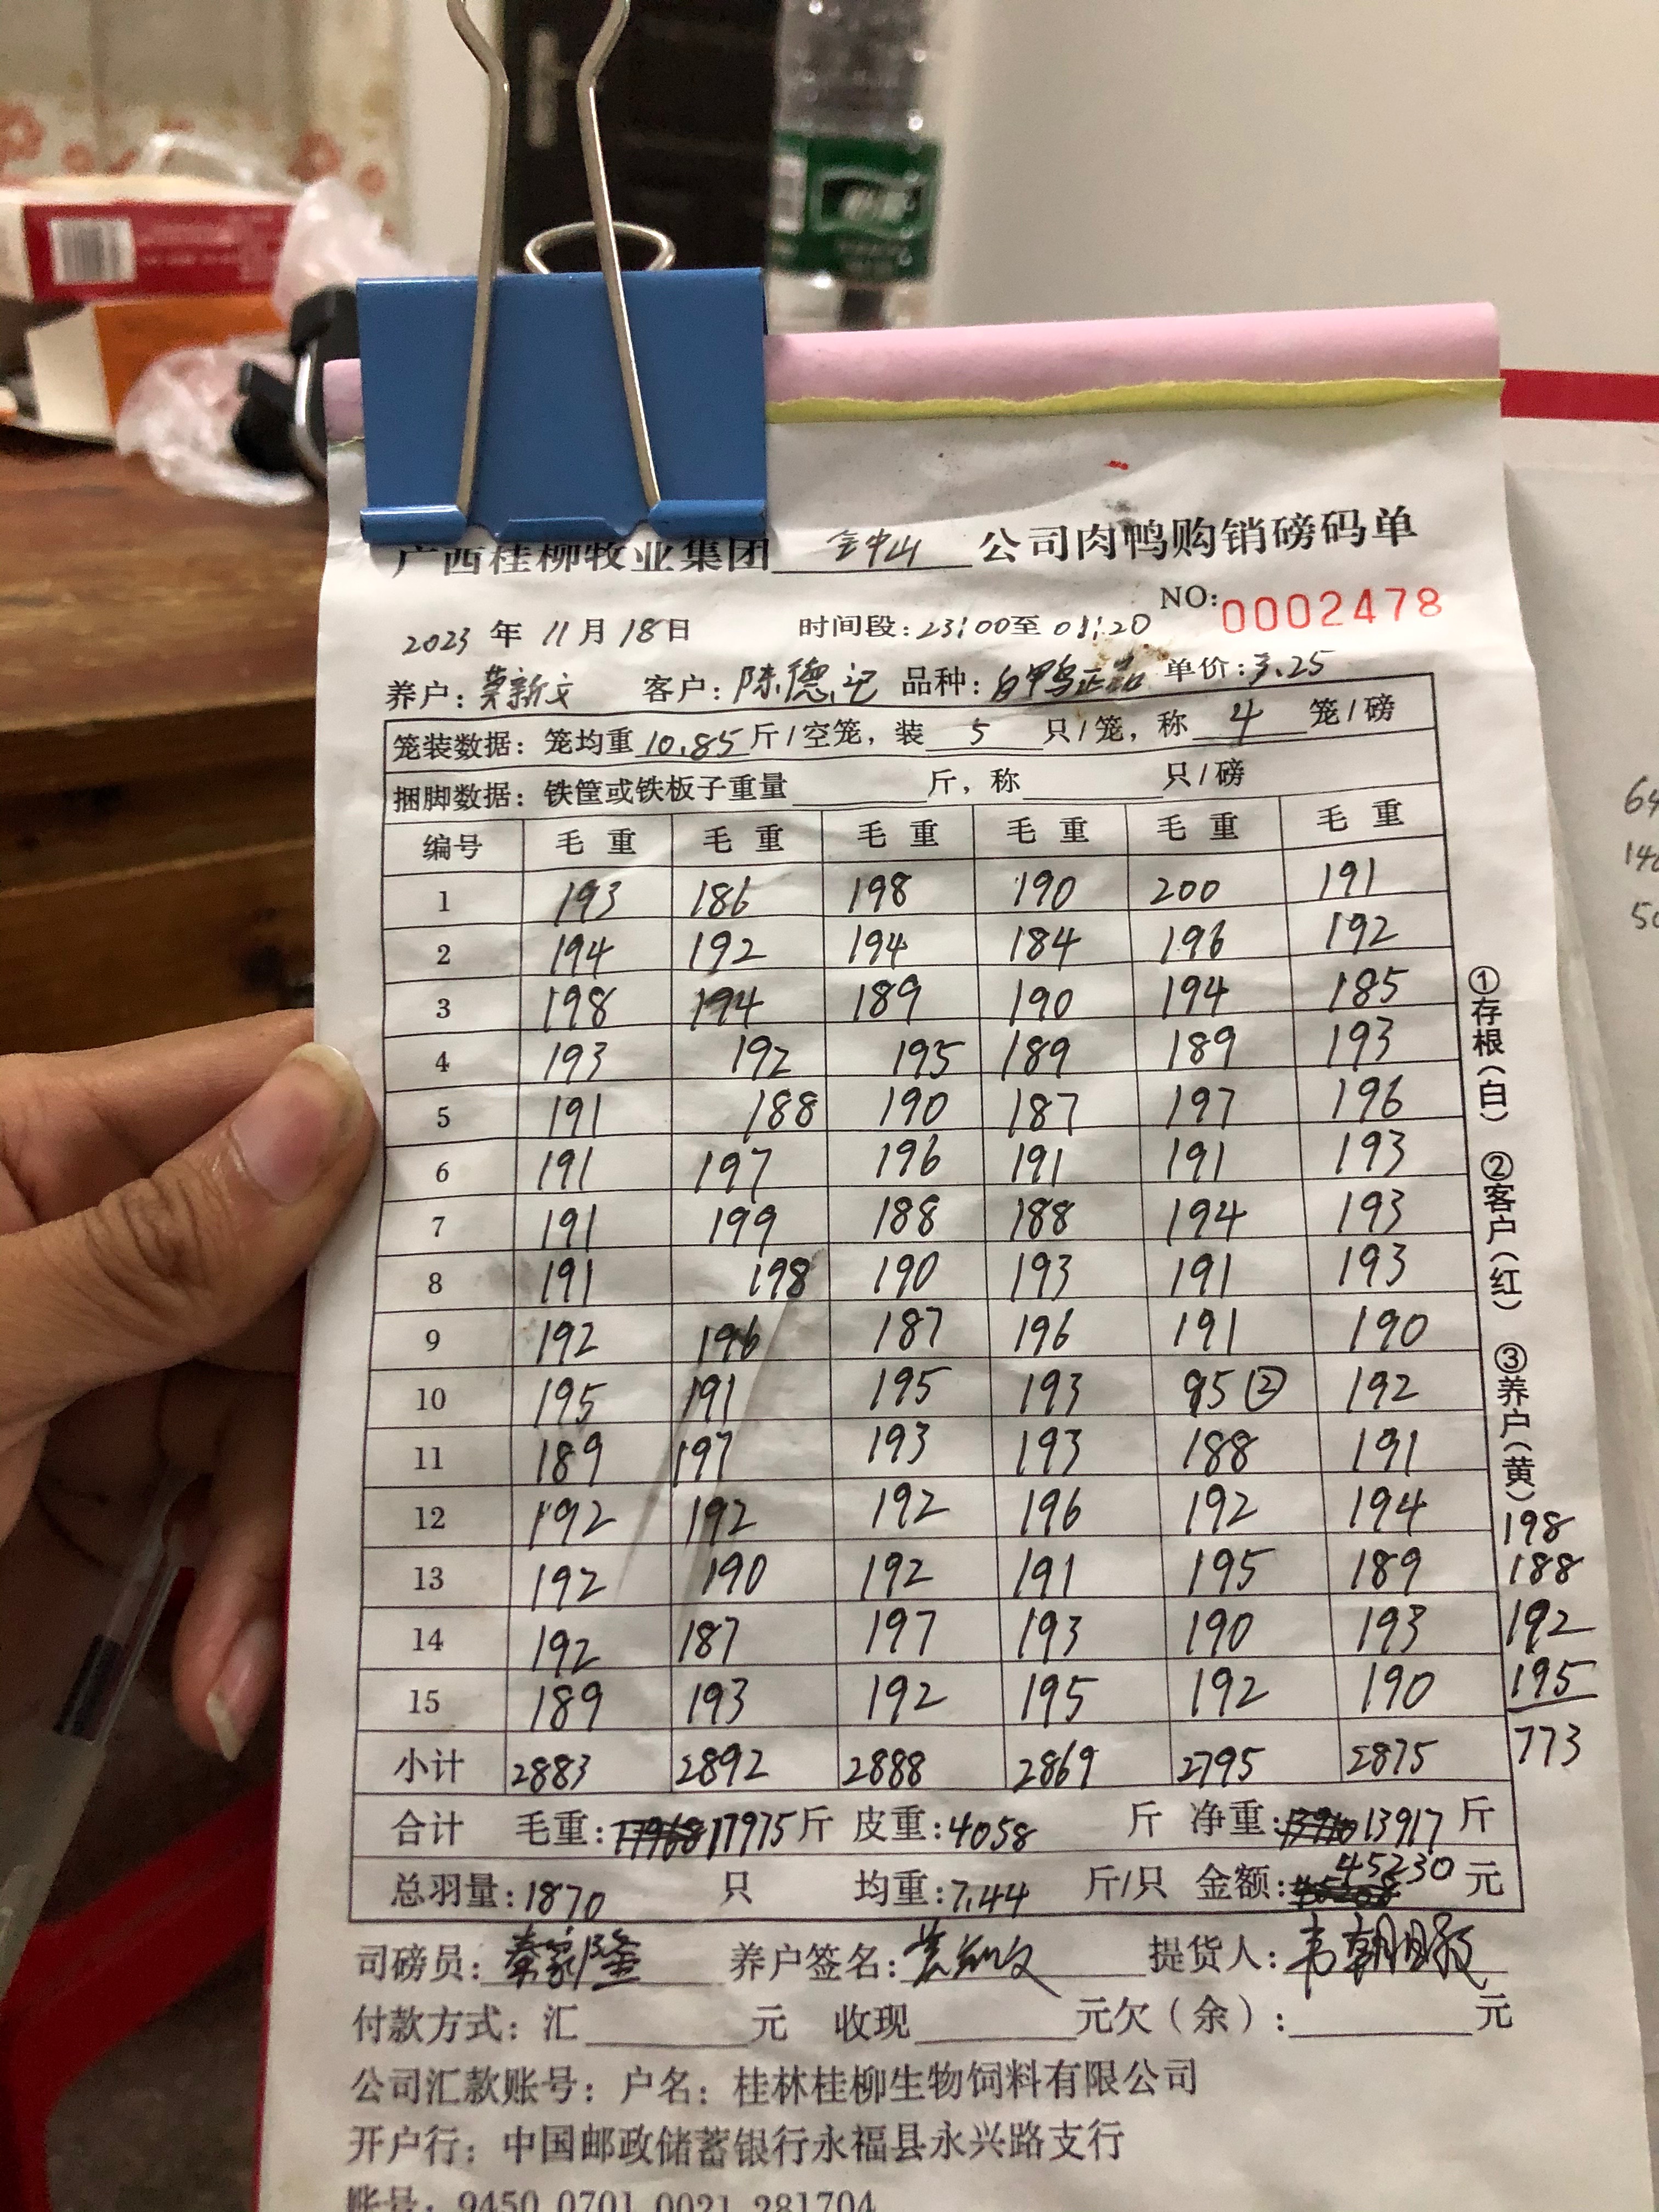 广西桂柳牧业集团 钟山 公司肉鸭购销磅码单
NO:0002478
2023 年 11 月 18 日 时间段:23:00至 01:20
养户: 黄新文 客户: 陈德记 品种: 白鸭正品 单价:3.25
笼装数据: 笼均重 10.85 斤/空笼, 装 5 只/笼, 称 4 笼/磅
捆脚数据: 铁筐或铁板子重量 斤, 称 只/磅
编号 毛 重 毛 重 毛 重 毛 重 毛 重 毛 重
1 193 186 198 190 200 191
2 194 192 194 184 196 192
3 198 194 189 190 194 185
4 193 192 195 189 189 193
5 191 188 190 187 197 196
6 191 197 196 191 191 193
7 191 199 188 188 194 193
8 191 198 190 193 191 193
9 192 196 187 196 191 190
10 195 191 195 193 95② 192
11 189 197 193 193 188 191
12 192 192 192 196 192 194
13 192 190 192 191 195 189
14 192 187 197 193 190 193
15 189 193 192 195 192 190
小计 2883 2892 2888 2869 2795 2875
合计 毛重: 17975 斤 皮重: 4058 斤 净重: 13917 斤
总羽量: 1870 只 均重: 7.44 斤/只 金额: 45230 元
①存根(白) ②客户(红) ③养户(黄)
198
188
192
195
773
司磅员: 秦家隆 养户签名: 提货人: 韦朝
付款方式: 汇 元 收现 元欠(余): 元
公司汇款账号: 户名: 桂林桂柳生物饲料有限公司
开户行: 中国邮政储蓄银行永福县永兴路支行
账号: 9450 0701 0021 281704
64
140
50